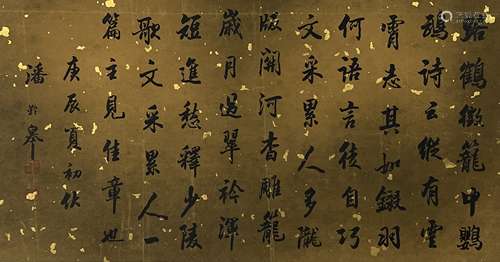 鶴徵籠中鸚
鵡詩云縱有雲
霄志其如鎩羽
何語言徒自巧
文采累人多隴
版關河杳雕籠
歲月過翠衿渾
短盡愁釋少陵
歌文采累人一
篇主見佳章也
庚辰夏初伏
潘齡皋